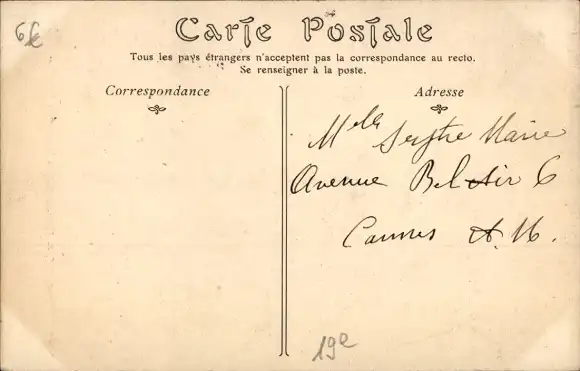 6€
Carte Postale
Tous les pays étrangers n'acceptent pas la correspondance au recto.
Se renseigner à la poste.
Correspondance
Adresse
Melle Marie
Avenue Bel Air 6
Cannes A. M.
19e